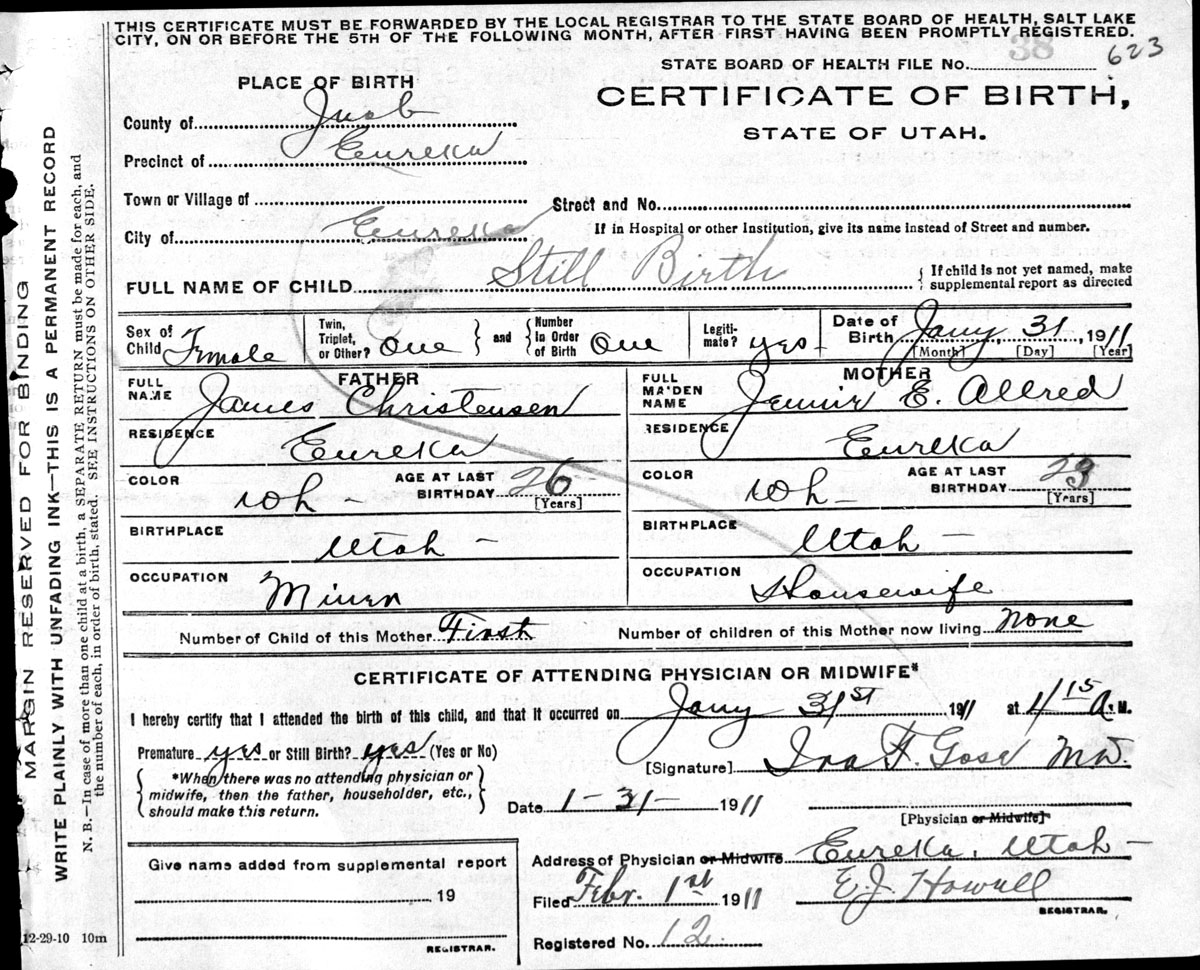 THIS CERTIFICATE MUST BE FORWARDED BY THE LOCAL REGISTRAR TO THE STATE BOARD OF HEALTH, SALT LAKE
CITY, ON OR BEFORE THE 5TH OF THE FOLLOWING MONTH, AFTER FIRST HAVING BEEN PROMPTLY REGISTERED.
38 623
STATE BOARD OF HEALTH FILE No.
PLACE OF BIRTH
CERTIFICATE OF BIRTH,
STATE OF UTAH.
County of Juab
Precinct of Eureka
Town or Village of
Street and No.
City of Eureka
If in Hospital or other Institution, give its name instead of Street and number.
FULL NAME OF CHILD Still Birth
If child is not yet named, make
supplemental report as directed
Sex of Child Female
Twin, Triplet, or Other? One
and Number In Order of Birth One
Legitimate? yes
Date of Birth Jany 31, 1911
[Month] [Day] [Year]
FATHER
FULL NAME James Christensen
RESIDENCE Eureka
COLOR Wh -
AGE AT LAST BIRTHDAY 26 [Years]
BIRTHPLACE Utah -
OCCUPATION Miner
MOTHER
FULL MAIDEN NAME Jennie E. Allred
RESIDENCE Eureka
COLOR Wh -
AGE AT LAST BIRTHDAY 23 [Years]
BIRTHPLACE Utah -
OCCUPATION Housewife
Number of Child of this Mother First
Number of children of this Mother now living none
CERTIFICATE OF ATTENDING PHYSICIAN OR MIDWIFE*
I hereby certify that I attended the birth of this child, and that it occurred on Jany 31st 1911 at 4 15 A.M.
Premature yes or Still Birth? yes (Yes or No)
[Signature] Ira F. Gose MD.
*When there was no attending physician or
midwife, then the father, householder, etc.,
should make this return.
Date 1-31- 1911
[Physician or Midwife]
Give name added from supplemental report
19
REGISTRAR.
Address of Physician or Midwife Eureka, Utah -
Filed Febr. 1st 1911 E.J. Howell
REGISTRAR.
Registered No. 12
12-29-10 10m
MARGIN RESERVED FOR BINDING
WRITE PLAINLY WITH UNFADING INK—THIS IS A PERMANENT RECORD
N. B.—In case of more than one child at a birth, a SEPARATE RETURN must be made for each, and
the number of each, in order of birth, stated. SEE INSTRUCTIONS ON OTHER SIDE.